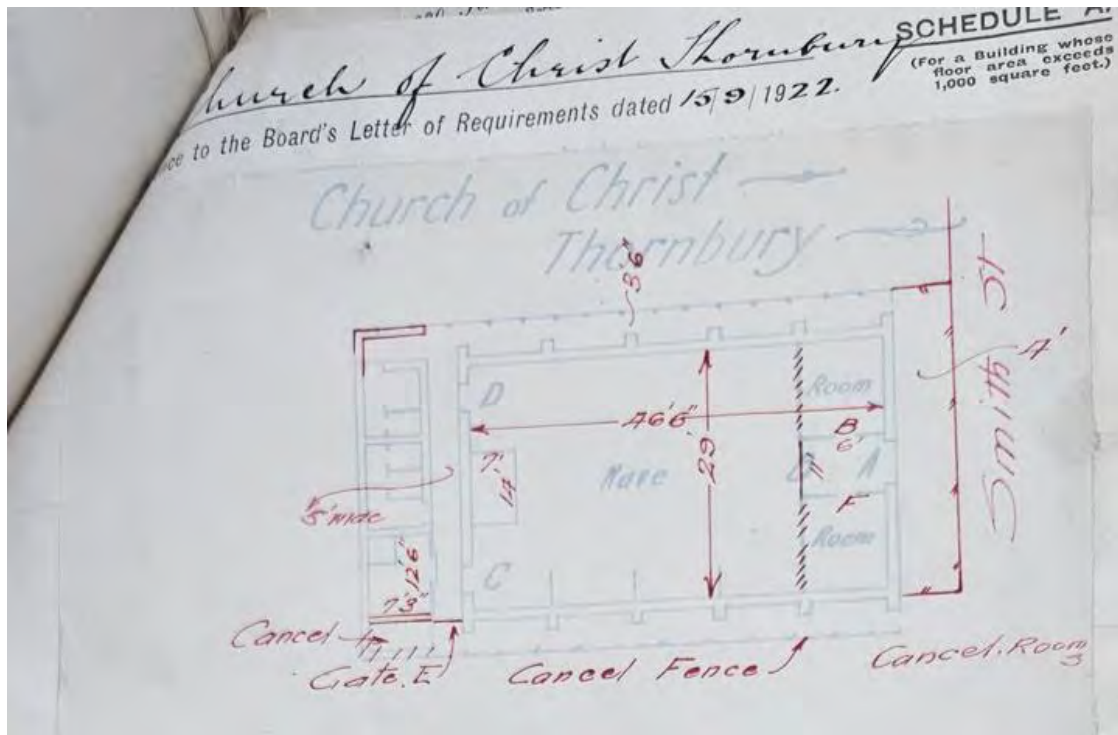 Church of Christ Thornbury
SCHEDULE
(For a Building whose
floor area exceeds
1,000 square feet.)
to the Board's Letter of Requirements dated 15/9/1922.
Church of Christ
Thornbury
3'6"
Smith St
4'
D
Room
46'6"
B
6'
29'
7'
14'
Nave
A
F
Room
5' wide
C
12'6"
7'3"
Cancel
Gate. E
Cancel Fence
Cancel. Room